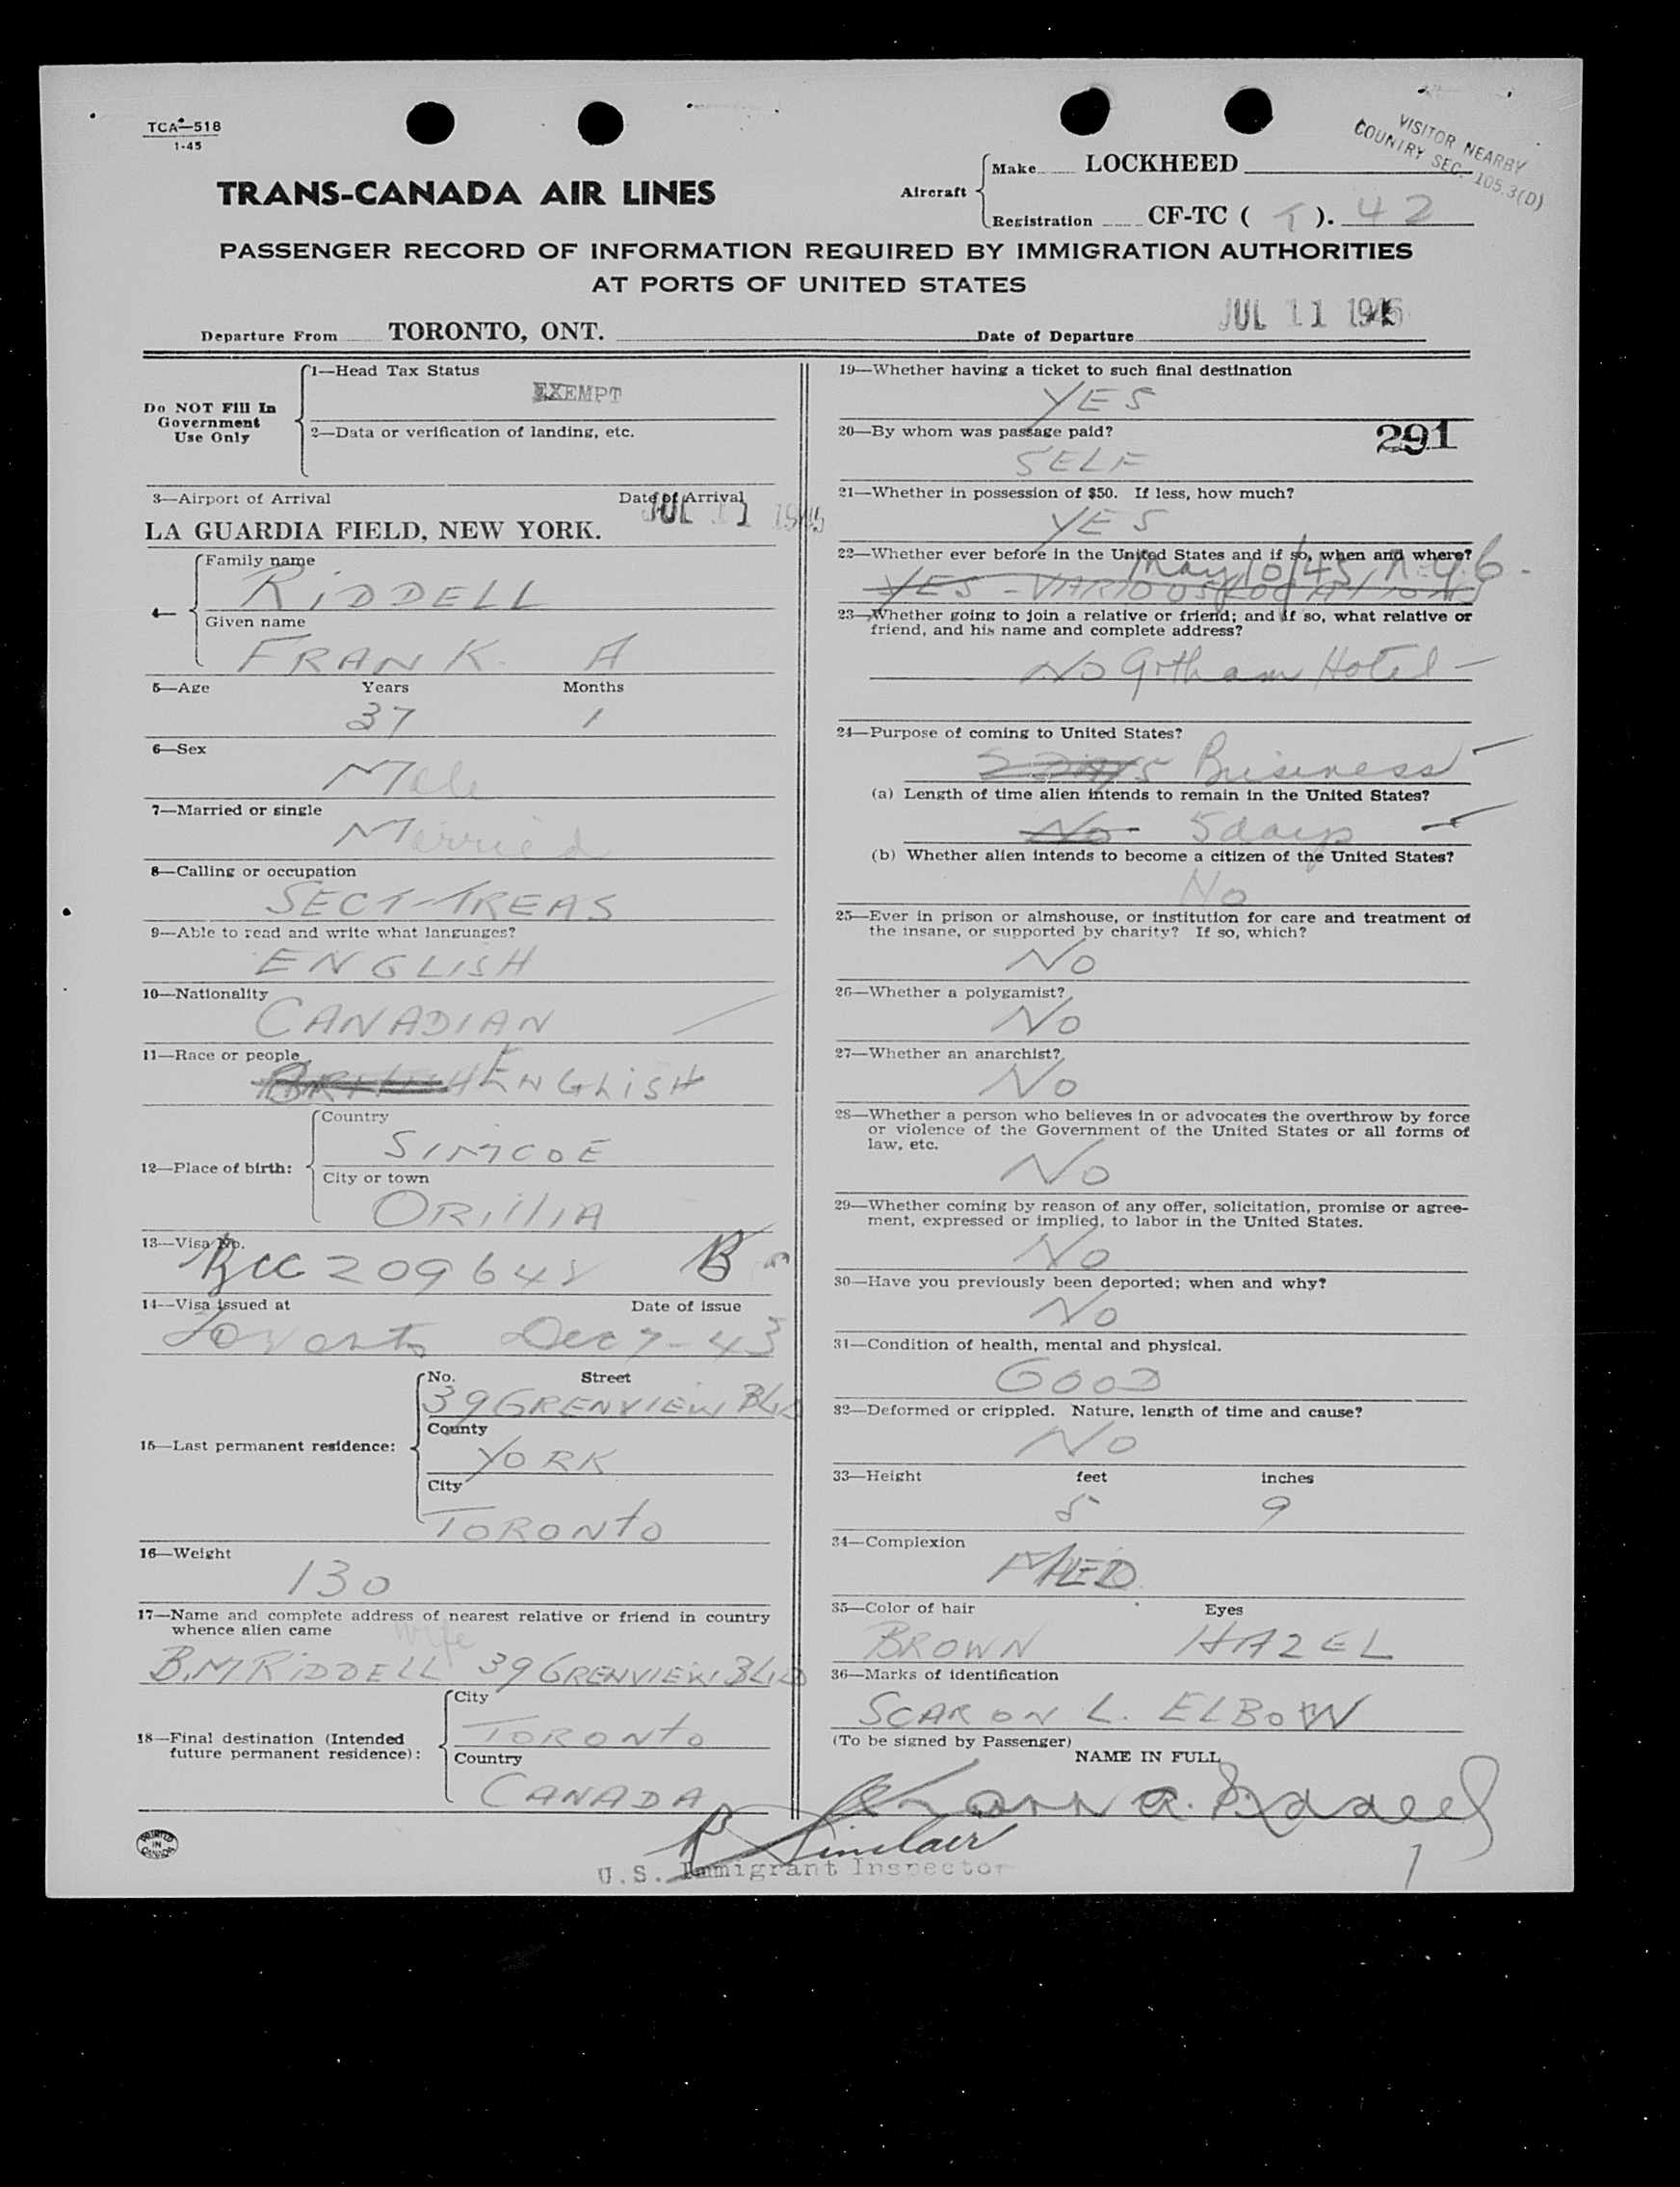 TCA—518
1-45
VISITOR NEARBY
COUNTRY SEC. 105.3(D)
TRANS-CANADA AIR LINES
Aircraft
Make LOCKHEED
Registration CF-TC ( T ). 42
PASSENGER RECORD OF INFORMATION REQUIRED BY IMMIGRATION AUTHORITIES
AT PORTS OF UNITED STATES
Departure From TORONTO, ONT. Date of Departure JUL 11 1945
Do NOT Fill In
Government
Use Only
1—Head Tax Status
EXEMPT
2—Data or verification of landing, etc.
3—Airport of Arrival Date of Arrival
LA GUARDIA FIELD, NEW YORK. JUL 11 1945
4—
Family name
RIDDELL
Given name
FRANK A
5—Age Years Months
37 1
6—Sex
Male
7—Married or single
Married
8—Calling or occupation
SECT-TREAS
9—Able to read and write what languages?
ENGLISH
10—Nationality
CANADIAN
11—Race or people
BRITISH ENGLISH
12—Place of birth:
Country
SIMCOE
City or town
ORILLIA
13—Visa No.
BCC 209648 B
14—Visa issued at Date of issue
Toronto Dec 7-43
15—Last permanent residence:
No. Street
39 GRENVIEW BLVD
County
YORK
City
TORONTO
16—Weight
130
17—Name and complete address of nearest relative or friend in country
whence alien came
Wife
B.M RIDDELL 39 GRENVIEW BLVD
18—Final destination (Intended
future permanent residence):
City
TORONTO
Country
CANADA
PRINTED
IN
CANADA
19—Whether having a ticket to such final destination
YES
20—By whom was passage paid?
291
SELF
21—Whether in possession of $50. If less, how much?
YES
22—Whether ever before in the United States and if so, when and where?
May 10/45, N.Y.C.
YES - VARIOUS LOCATIONS
23—Whether going to join a relative or friend; and if so, what relative or
friend, and his name and complete address?
No Gotham Hotel
24—Purpose of coming to United States?
5 DAYS Business
(a) Length of time alien intends to remain in the United States?
No 5 days
(b) Whether alien intends to become a citizen of the United States?
No
25—Ever in prison or almshouse, or institution for care and treatment of
the insane, or supported by charity? If so, which?
No
26—Whether a polygamist?
No
27—Whether an anarchist?
No
28—Whether a person who believes in or advocates the overthrow by force
or violence of the Government of the United States or all forms of
law, etc.
No
29—Whether coming by reason of any offer, solicitation, promise or agree-
ment, expressed or implied, to labor in the United States.
No
30—Have you previously been deported; when and why?
No
31—Condition of health, mental and physical.
GOOD
32—Deformed or crippled. Nature, length of time and cause?
No
33—Height feet inches
5 9
34—Complexion
MED
35—Color of hair Eyes
BROWN HAZEL
36—Marks of identification
SCAR ON L. ELBOW
(To be signed by Passenger)
NAME IN FULL
Frank A. Riddell
R Sinclair
U.S. Immigrant Inspector
1